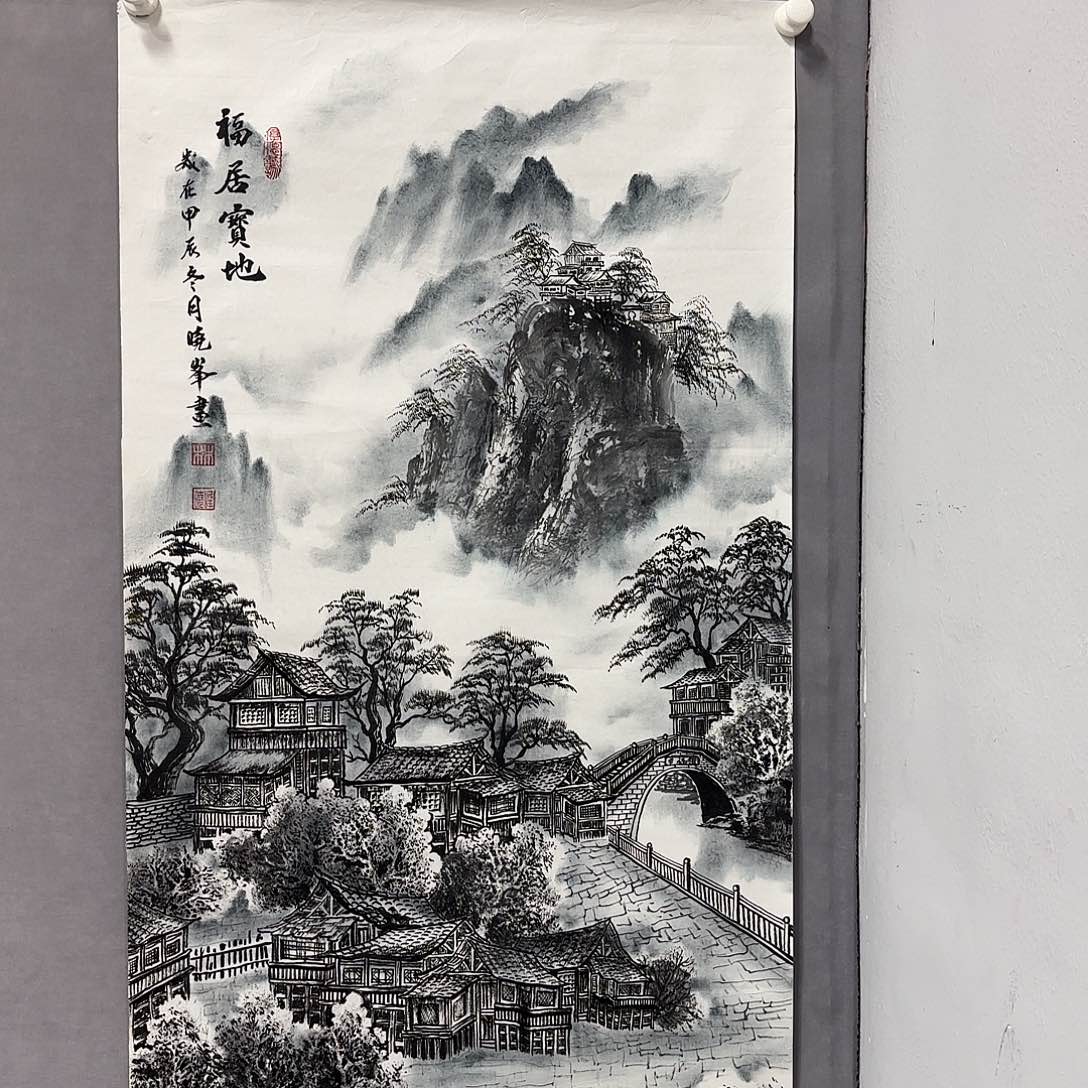 福居寶地
歲在甲辰冬月曉峯畫